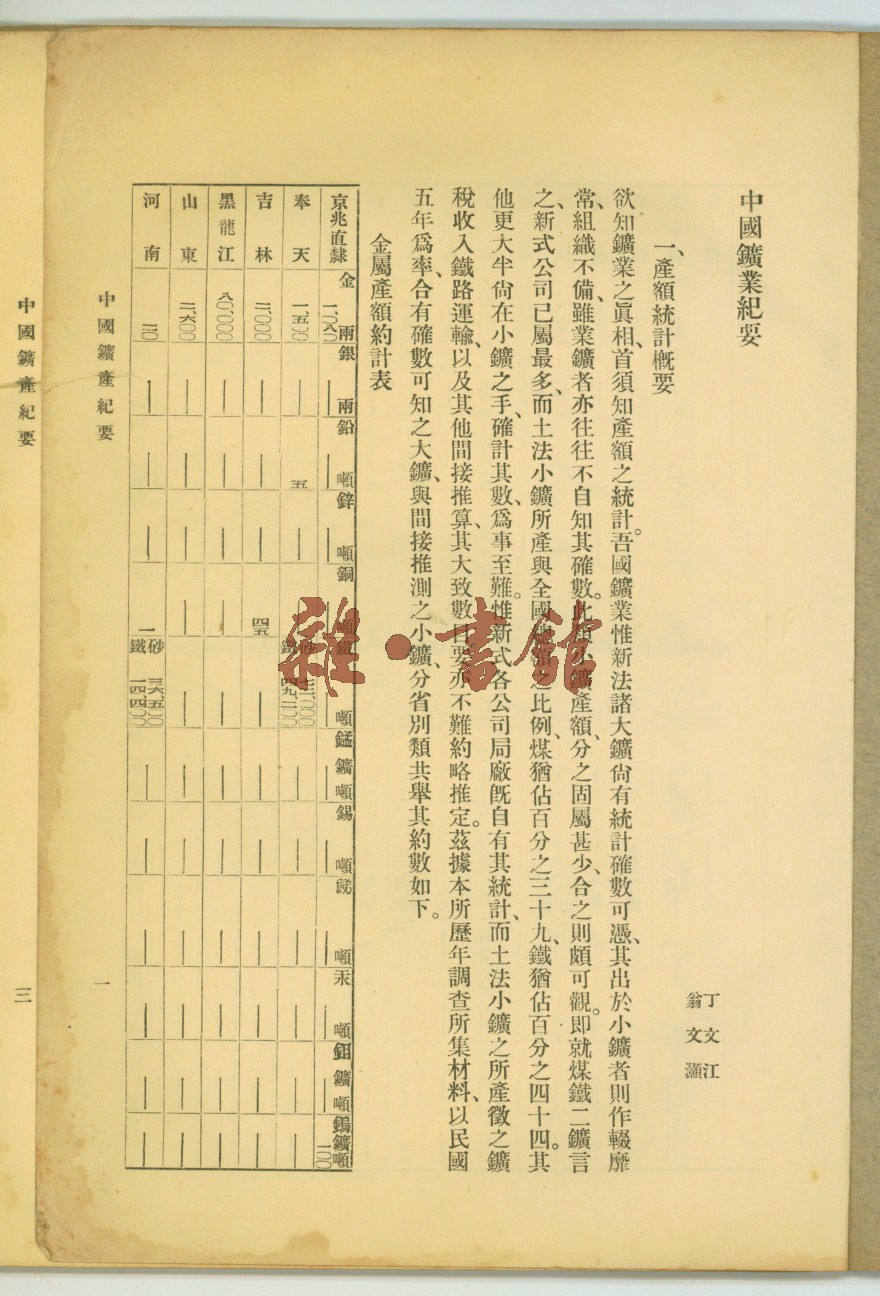 中國鑛業紀要
丁文江
翁文灝
一、產額統計概要
欲知鑛業之眞相、首須知產額之統計。吾國鑛業惟新法諸大鑛尙有統計確數可憑、其出於小鑛者則作輟靡
常、組織不備、雖業鑛者亦往往不自知其確數。此項小鑛產額、分之固屬甚少、合之則頗可觀。即就煤鐵二鑛言
之、新式公司已屬最多、而土法小鑛所產與全國總額之比例、煤猶佔百分之三十九、鐵猶佔百分之四十四。其
他更大半尙在小鑛之手、確計其數、爲事至難。惟新式各公司局廠旣自有其統計、而土法小鑛之所產徵之鑛
稅收入鐵路運輸、以及其他間接推算、其大致數目要亦不難約略推定。茲據本所歷年調查所集材料、以民國
五年爲率、合有確數可知之大鑛、與間接推測之小鑛、分省別類共舉其約數如下。
金屬產額約計表
金 兩 銀 兩 鉛 噸 鋅 噸 銅 噸 鐵 噸 錳鑛噸 錫 噸 銻 噸 汞 噸 鉬鑛噸 鎢鑛噸
京兆直隸 一、〇八〇 — — — — — — — — — — 一〇〇
奉天 一、五〇〇 — 五 — 砂 鐵 — — — — — —
吉林 三、〇〇〇 — — — 四五 — — — — — — —
黑龍江 八〇、〇〇〇 — — — — — — — — — — —
山東 三、六〇〇 — — — — — — — — — — —
河南 三〇 — — — 一 砂 三六五〇〇 鐵 一四四〇〇 — — — — — —
中國鑛產紀要
一
中國鑛產紀要
三
雜·書館